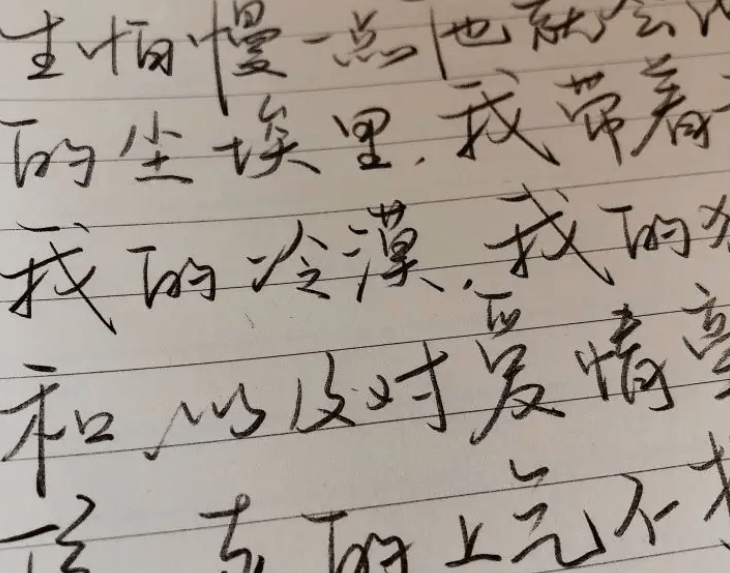 生怕慢一点他就会
的尘埃里,我带着
我的冷漠,我的
和以及对爱情
的上气不